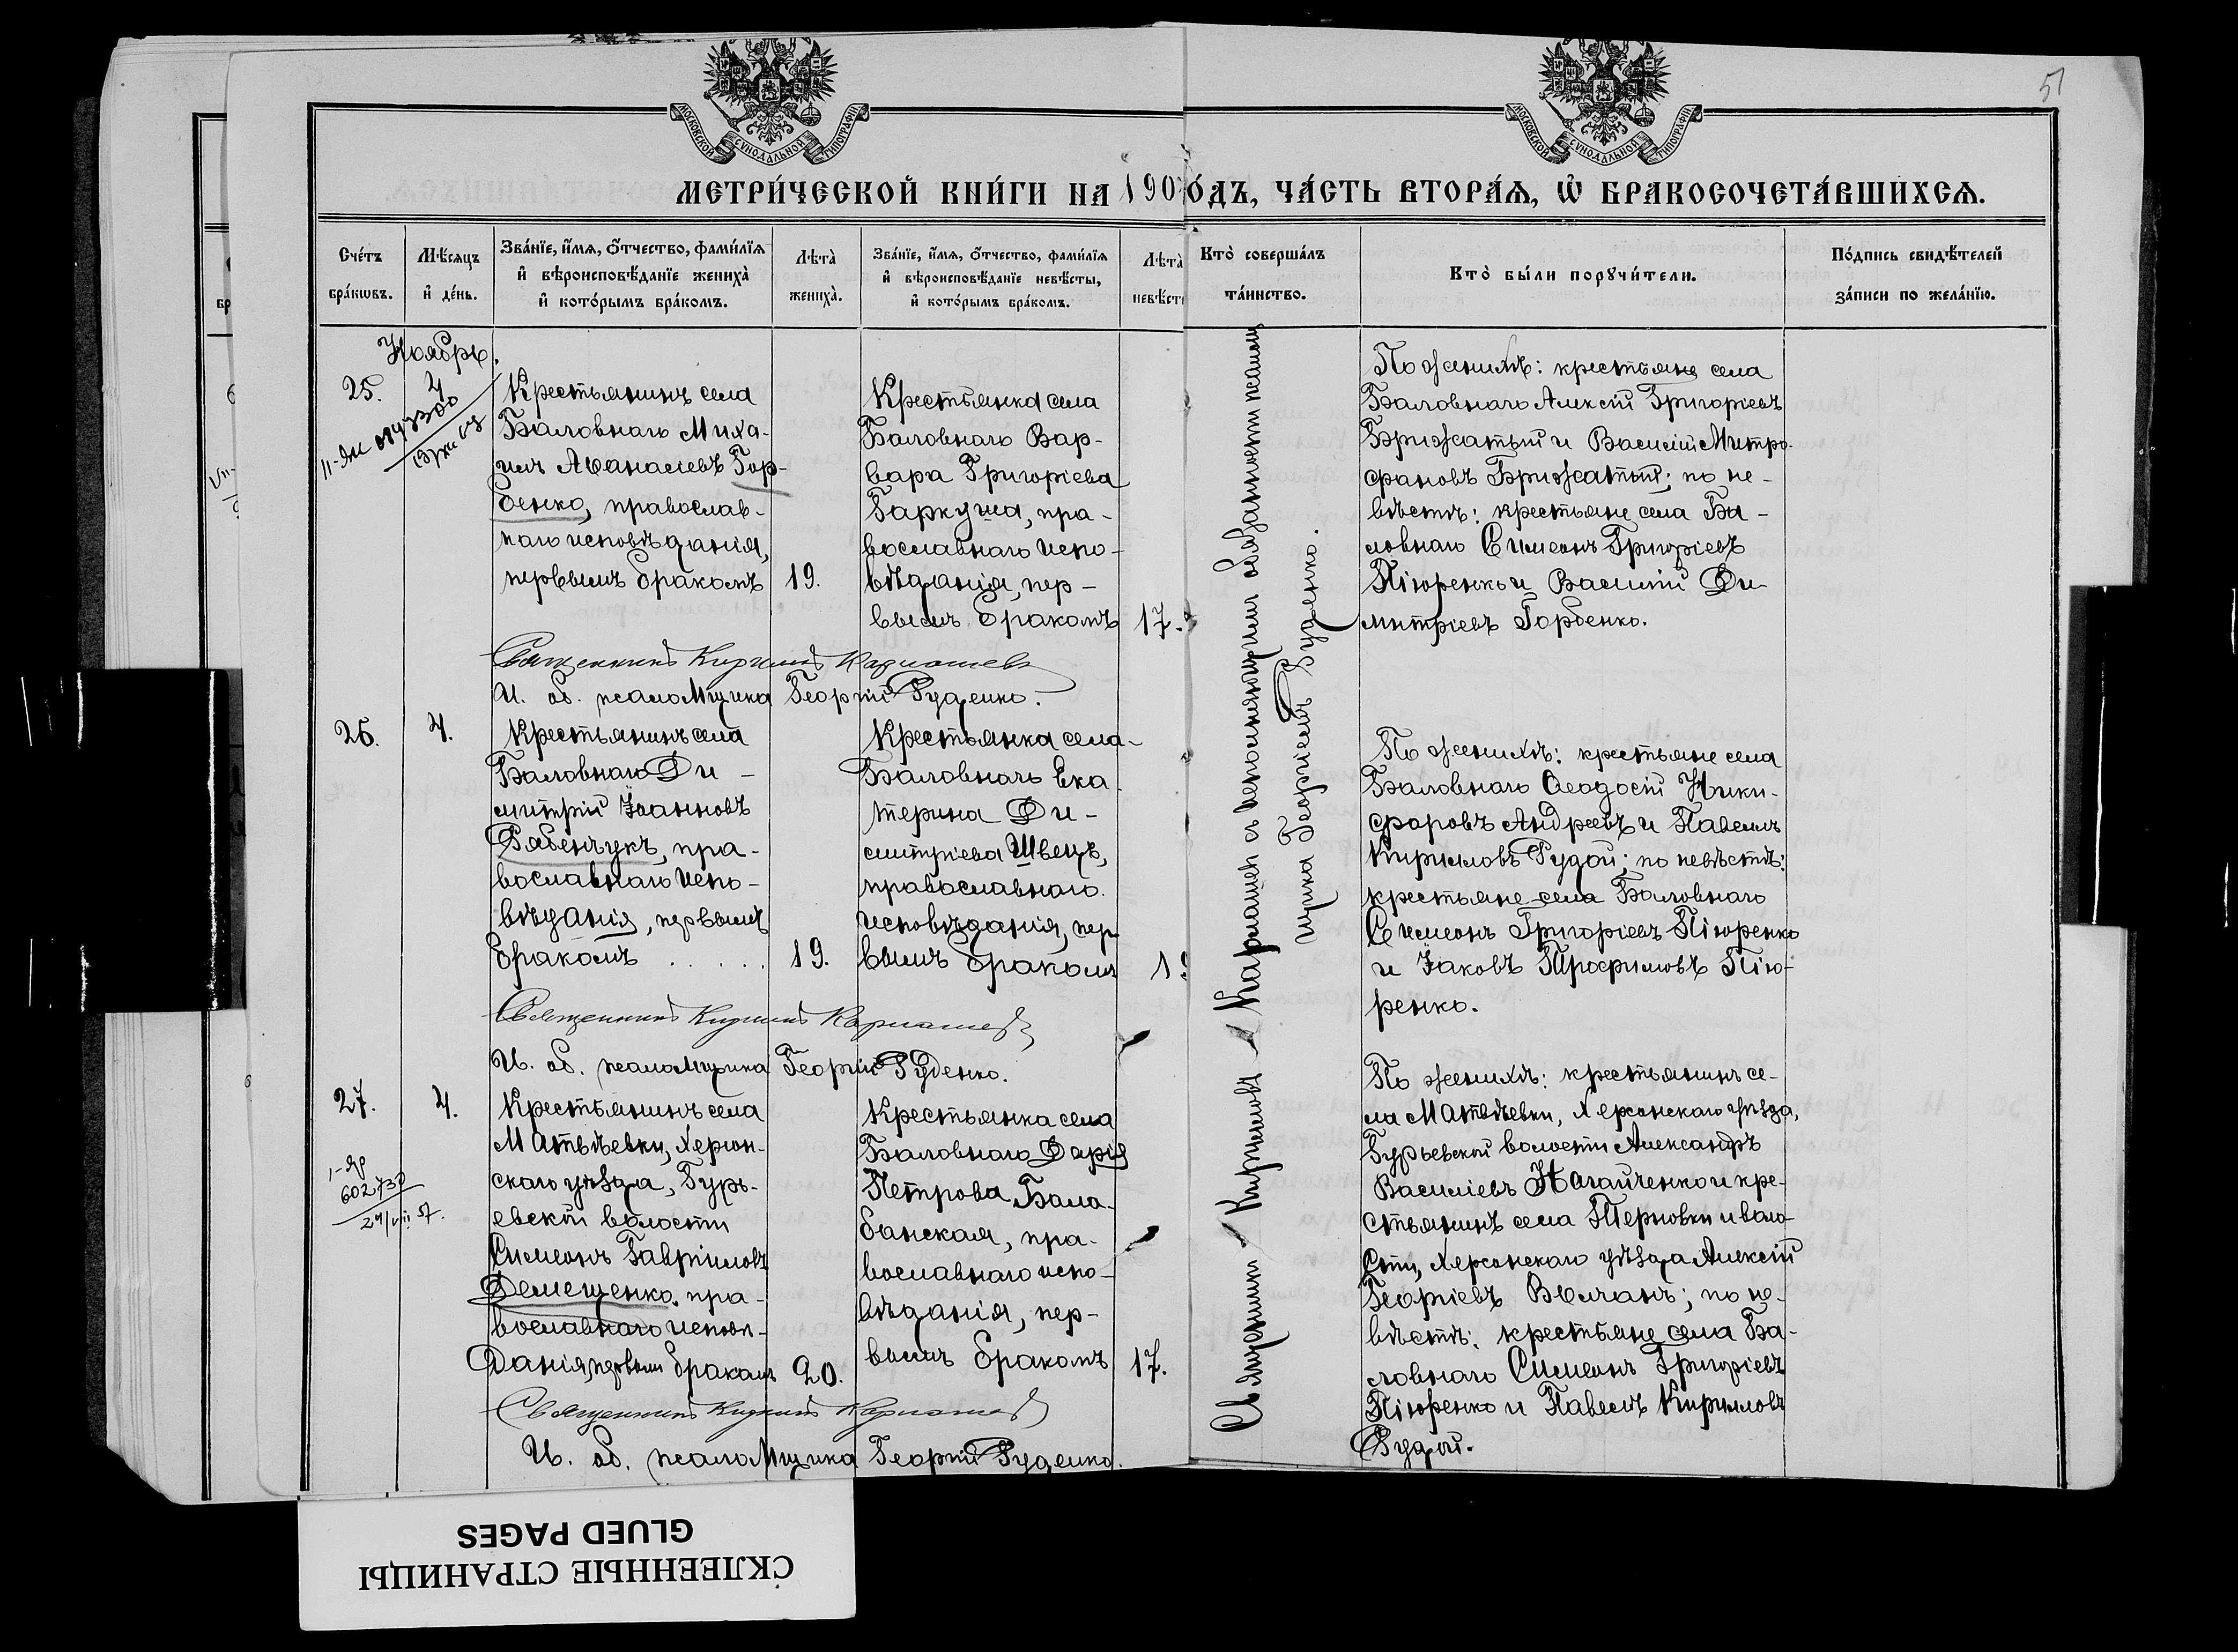 51
МОСКОВСКОЙ СѴНОДАЛЬНОЙ ТИПОГРАФІИ
МОСКОВСКОЙ СѴНОДАЛЬНОЙ ТИПОГРАФІИ
МЕТРИ́ЧЕСКОЙ КНИ́ГИ НА 190 О́ДЪ, ЧА́СТЬ ВТОРА́Ѧ, Ѡ҆ БРАКОСОЧЕТА́ВШИХСѦ.
Сче́тъ
бра́кѡвъ.
Мѣ́сяцъ
и҆ де́нь.
Зва́нїе, и҆́мя, ѻ҆́тчество, фами́лїя
и҆ вѣроисповѣ́данїе женихà
и҆ кото́рымъ бра́комъ.
Лѣтà
женихà.
Зва́нїе, и҆́мя, ѻ҆́тчество, фами́лїя
и҆ вѣроисповѣ́данїе невѣ́сты,
и҆ кото́рымъ бра́комъ.
Лѣтà
невѣ́ст
Кто̀ соверша́лъ
та́инство.
Кто̀ бы́ли порꙋчи́тели.
По́дпись свидѣ́телей
за́писи по жела́нїю.
Ноябрь.
25.
4
Крестьянинъ села
Баловнаго Миха-
илъ Аѳанасіевъ Гор-
бенко, православ-
наго исповѣданія,
первымъ бракомъ
19.
Крестьянка села
Баловнаго Вар-
вара Григоріева
Гаркуша, пра-
вославнаго испо-
вѣданія, пер-
вымъ бракомъ
17.
По женихѣ: крестьяне села
Баловнаго Алексій Григоріевъ
Брижатый и Василій Митро-
фановъ Брижатый; по не-
вѣстѣ: крестьяне села Ба-
ловнаго Симеонъ Григоріевъ
Пiюренко и Василій Ди-
митріевъ Горбенко.
Священникъ Кириллъ Карпашев
И. об. псаломщика Георгій Руденко.
26.
4.
Крестьянинъ села
Баловнаго Ди-
митрій Іоанновъ
Рябенчукъ, пра-
вославнаго испо-
вѣданія, первымъ
бракомъ . . . . .
19.
Крестьянка села
Баловнаго Ека
терина Ди-
митріева Швецъ,
православнаго
исповѣданія, пер
вымъ бракомъ
19
По женихѣ: крестьяне села
Баловнаго Ѳеодосій Ники-
форовъ Андреевъ и Павелъ
Кирилловъ Рудой; по невѣстѣ:
крестьяне села Баловнаго
Симеонъ Григоріевъ Пiюренко
и Іаковъ Трофимовъ Пiю-
ренко.
Священникъ Кириллъ
И. об. псаломщика Георгій Руденко.
27.
4.
1-
602730
24/VIII 57.
Крестьянинъ села
Матвѣевки, Херсон-
скаго уѣзда, Гурь-
евской волости
Симеонъ Гавріиловъ
Демещенко, пра-
вославнаго исповѣ-
данія, первым бракомъ
20.
Крестьянка села
Баловнаго Дарія
Петрова Бала-
банская, пра-
вославнаго испо-
вѣданія, пер-
вымъ бракомъ
17.
По женихѣ: крестьянинъ се-
ла Матвѣевки, Херсонскаго уѣзда,
Гурьевской волости Александръ
Василіевъ Нагайченко и кре-
стьянинъ села Терновки и воло-
сти, Херсонскаго уѣзда Алексій
Георгіевъ Вылчанъ; по не-
вѣстѣ: крестьяне села Ба-
ловнаго Симеонъ Григоріевъ
Пiюренко и Павелъ Кирилловъ
Рудой.
Священникъ Кириллъ
И. об. псаломщика Георгій Руденко.
Священник Кириллов Кармашев с исполняющим обязанности псалом
щика Георгіем Руденко.
СКЛЕЕННЫЕ СТРАНИЦЫ
GLUED PAGES